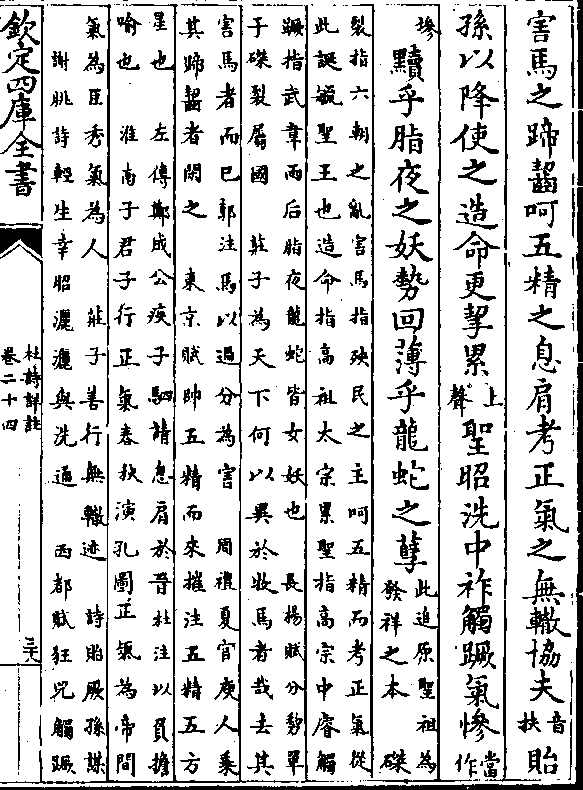 害馬之蹄齧呵五精之息肩考正氣之無轍協夫音扶貽
孫以降使之造命更挈累上聲聖昭洗中祚觸蹶氣慘當作
慘黷乎脂夜之妖勢回薄乎龍蛇之孽此追原聖祖為發祥之本磔
裂指六朝之亂害馬指殃民之主呵五精而考正氣從
此誕毓聖王也造命指高祖太宗累聖指高宗中睿觸
蹶指武韋兩后脂夜龍蛇皆女妖也 長楊賦分剺單
于磔裂屬國 莊子為天下何以異於牧馬者哉去其
害馬者而已郭注馬以過分為害 周禮夏官庾人乘
其蹄齧者閑之 東京賦帥五精而來摧注五精五方
星也 左傳鄭成公疾子駟請息肩於晉杜注以負擔
喻也 淮南子君子行正氣春秋演孔圖正氣為帝間
氣為臣秀氣為人 莊子善行無轍迹 詩貽厥孫謀
謝朓詩輕生幸昭灑灑與洗通 西都賦狂兕觸蹶
欽定四庫全書
杜詩詳註
卷二十四
三六